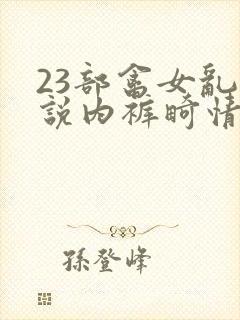 23部畜女亂
說內裤畸情
孫登峰